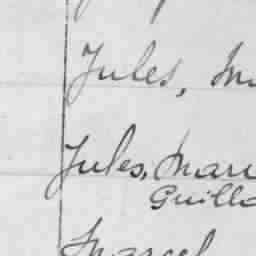 Jules, M
Jules, Mari
Guillo
Marcel